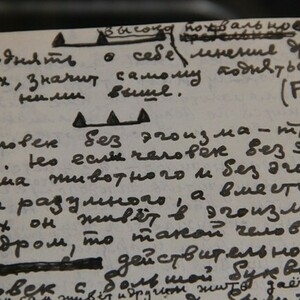 высоко похвальное
однять о себе мнение д
х, значит самому поднять
ними выше.
ловек без эгоизма – т
. Но если человек без э
ма животного и без эго
разумного, а вмест
х он живёт в эгоизм
дром, то такой челов
действительно
овек с большой буквы